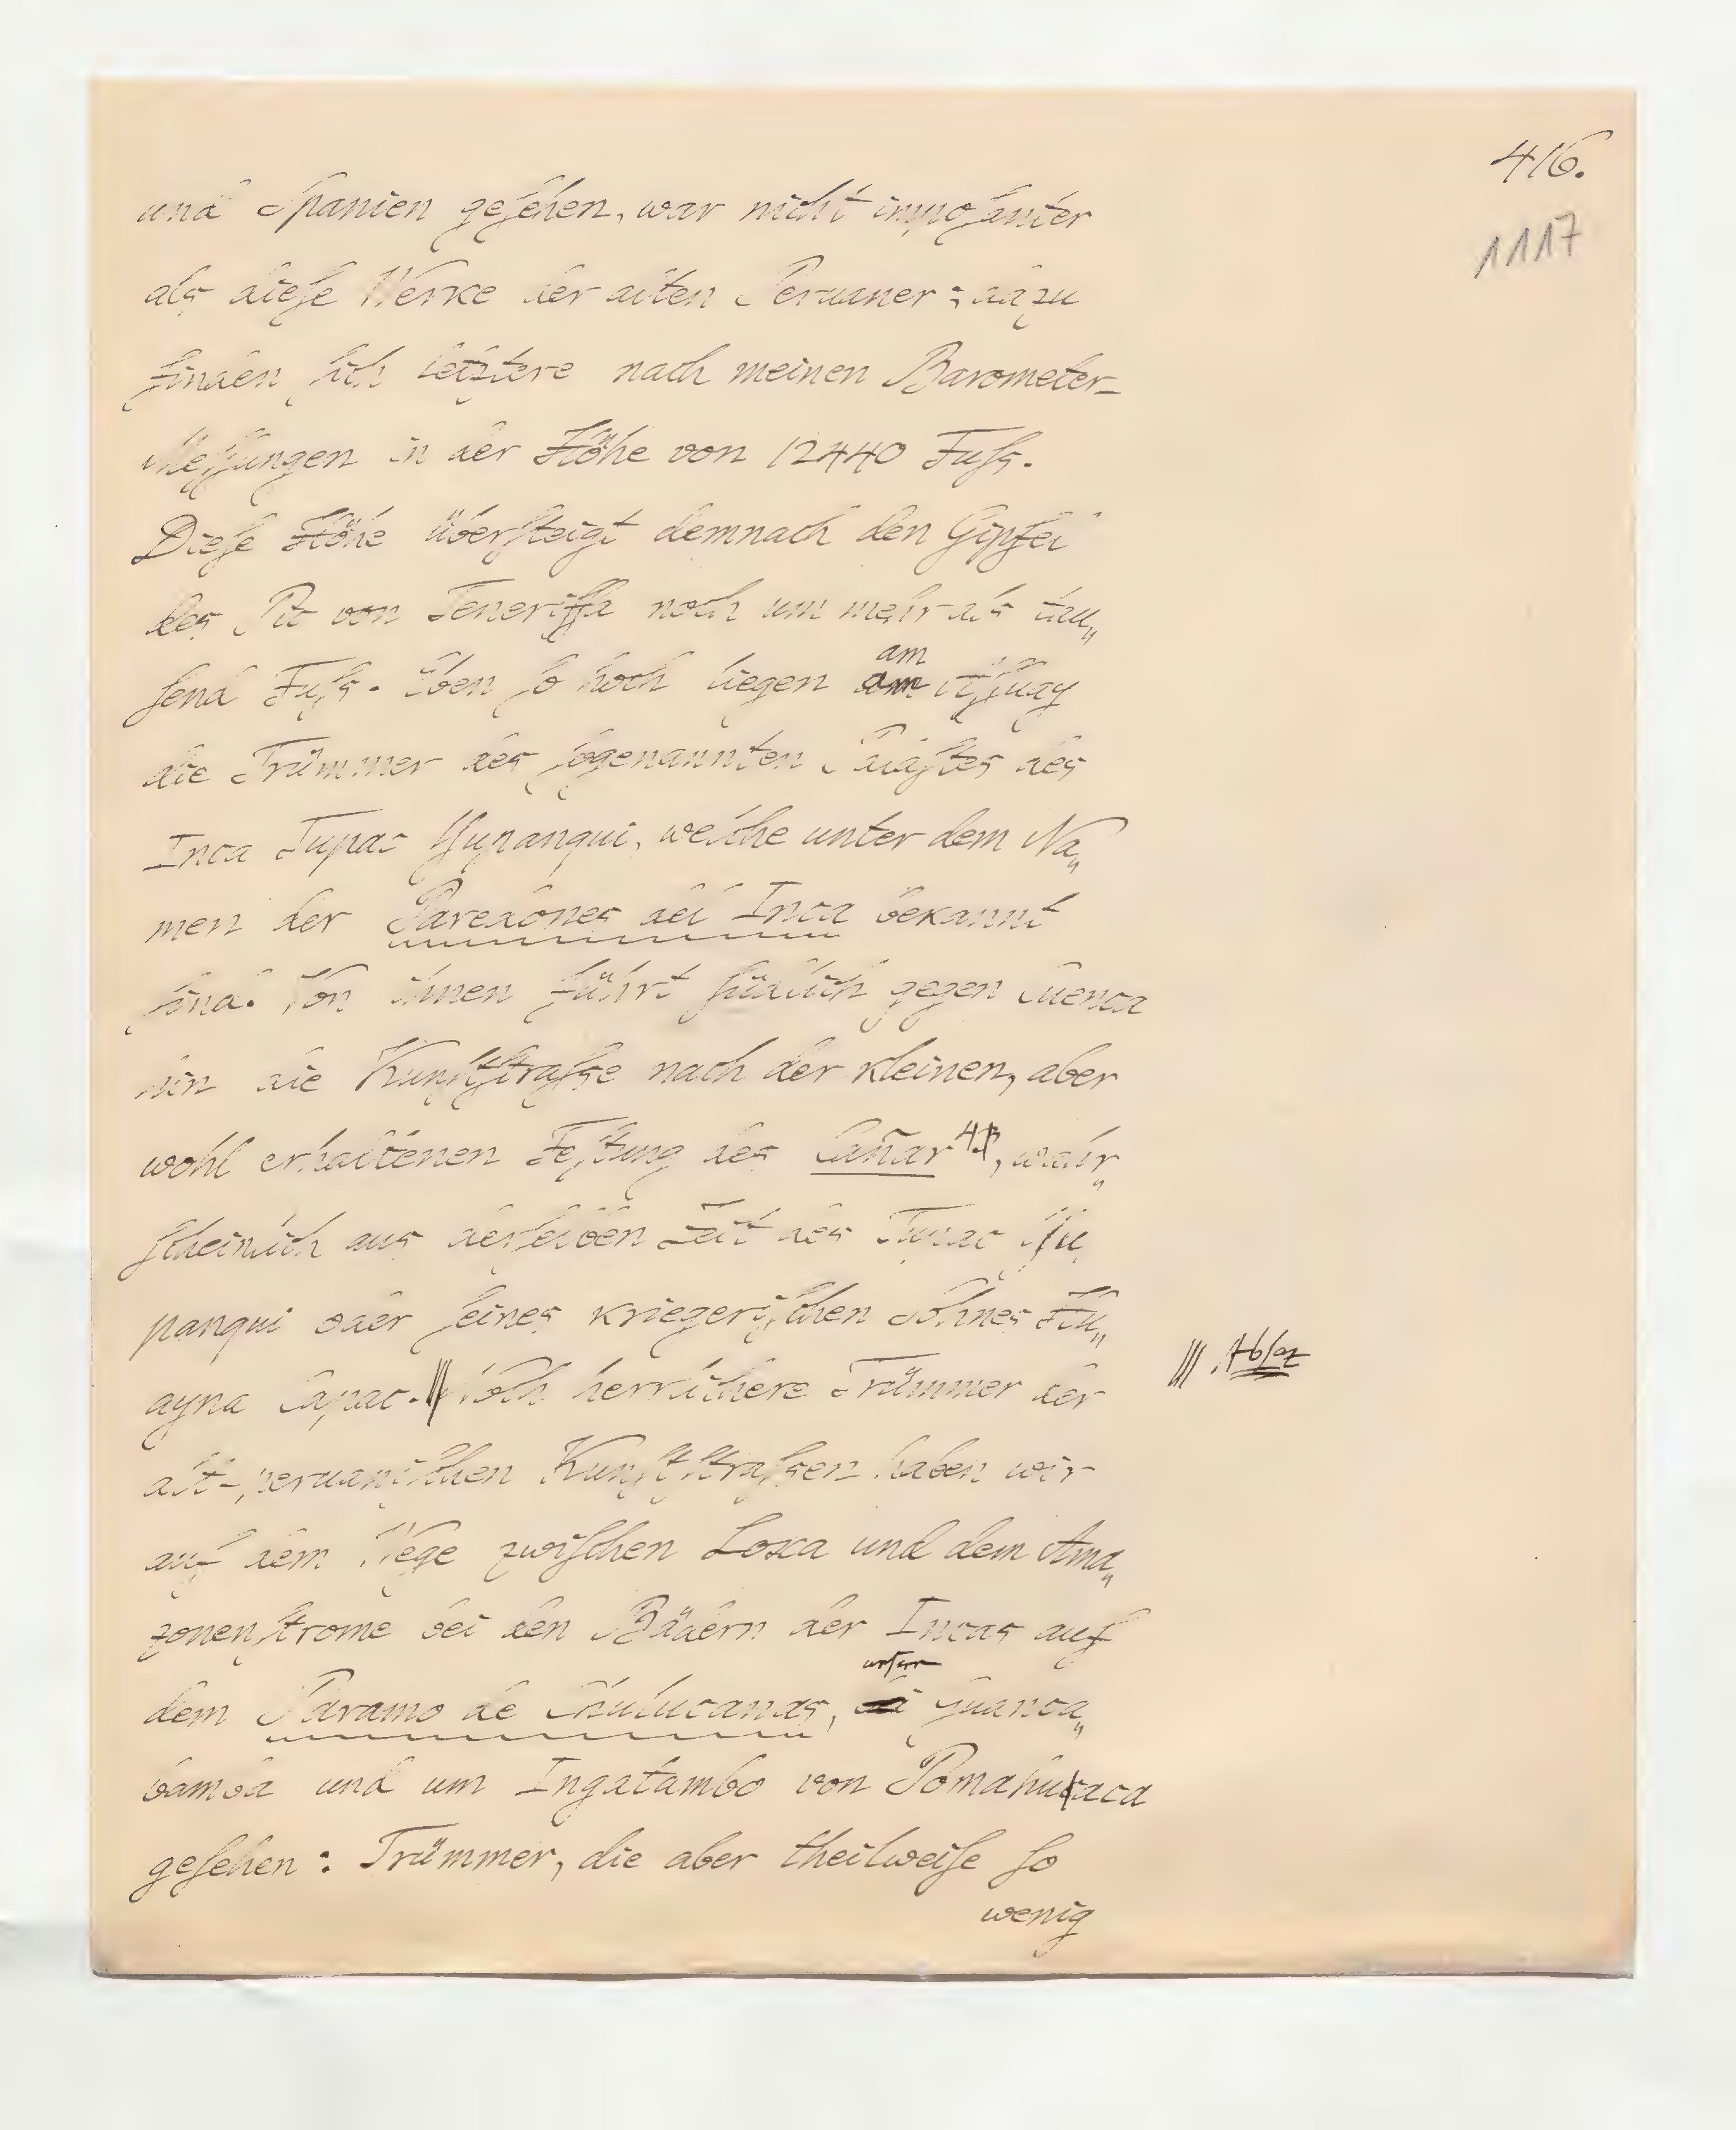 416.
1117
und Spanien geſehen, war nicht impoſanter
als dieſe Werke der alten Peruaner; dazu
finden ſich letztere nach meinen Barometer-
Meſſungen in der Höhe von 12440 Fuſs.
Dieſe Höhe überſteigt demnach den Gipfel
des Pic von Teneriffa noch um mehr als tau„
ſend Fuſs. Eben ſo hoch liegen am
am Aſſuay
die Trümmer des ſogenannten Palaſtes des
Inca Tupac Yupanqui, welche unter dem Na„
men der Paredones del Inca bekannt
ſind. Von ihnen führt ſüdlich gegen Cuenca
hin die Kunſtſtraſse nach der kleinen, aber
wohl erhaltenen Feſtung des Cañar, wahr„
ſcheinlich aus derſelben Zeit des Tupac Yu„
panqui oder ſeines kriegeriſchen Sohnes Hu„
ayna Capac. Noch herrlichere Trümmer der
||| Abſatz
alt-peruaniſchen Kunſtſtraſsen haben wir
auf dem Wege zwiſchen Loxa und dem Ama„
zonenſtrome bei den Bädern der Incas auf
dem Páramo de Chulucanas, unfern Guanca„
bamba und um Ingatambo von Pomahuaca
geſehen: Trümmer, die aber theilweiſe ſo
wenig